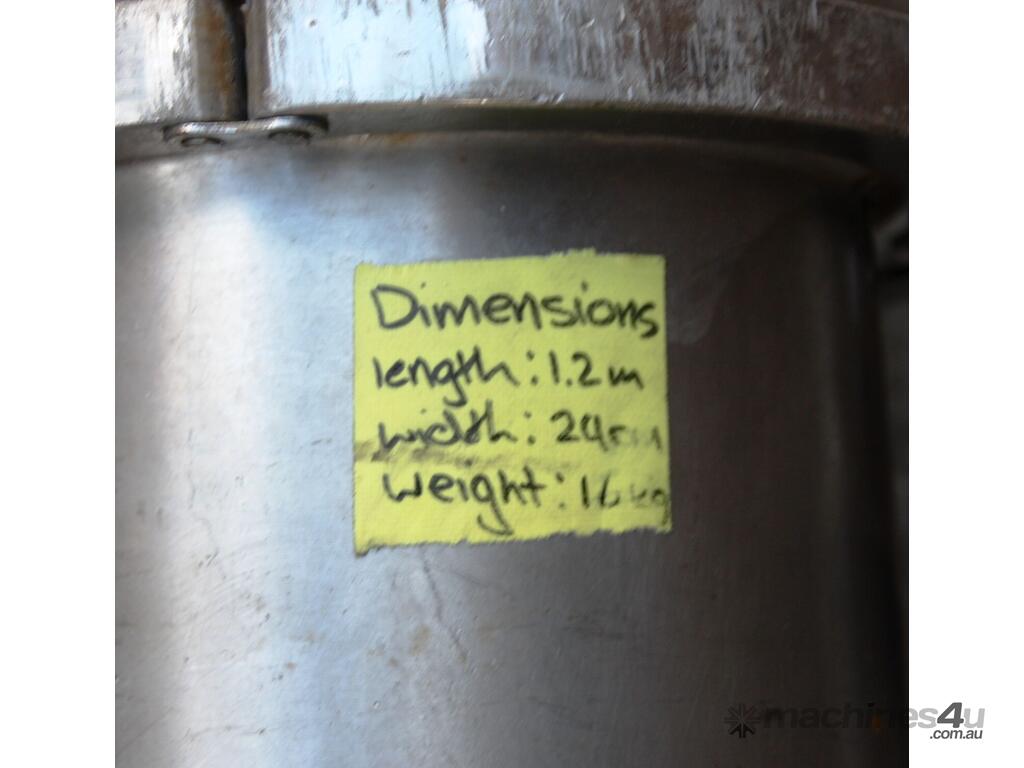 Dimensions
length: 1.2m
width: 24cm
weight: 16kg
machines4u
.com.au